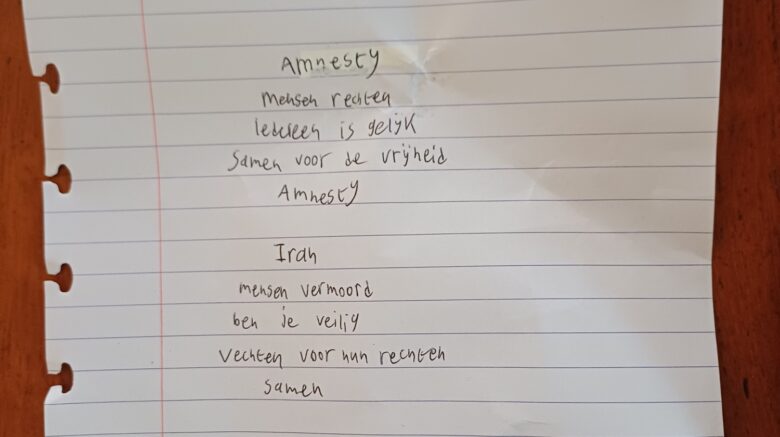 Amnesty
mensen rechten
Iedereen is gelijk
Samen voor de vrijheid
Amnesty
Iran
mensen vermoord
ben je veilig
Vechten voor hun rechten
Samen